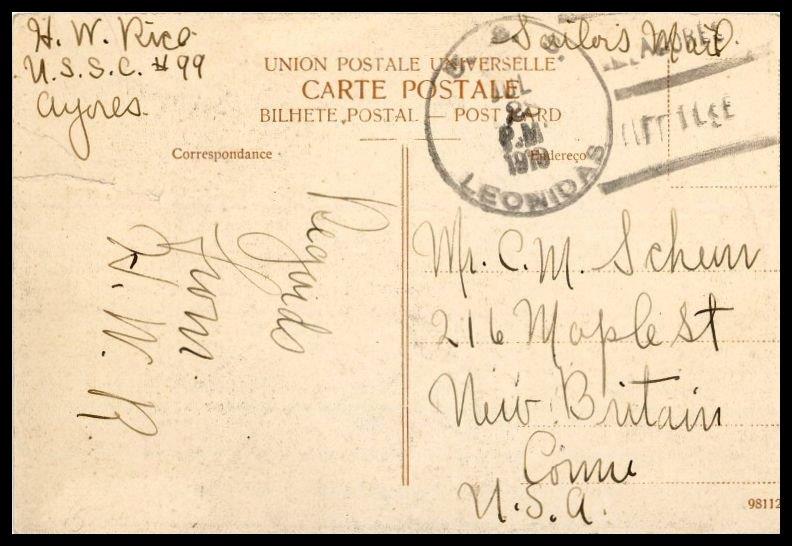 H. W. Rice
U.S.S.C. #99
Ayores.
Sailors Mail.
UNION POSTALE UNIVERSELLE
CARTE POSTALE
BILHETE POSTAL — POST CARD
U.S.S.
JUL
P.M
LEONIDAS
Correspondance
Endereço
Regards
From
H. W. R
Mr. C. M. Scheur
216 Maple St
New Britain
Conn
U.S.A.
98112